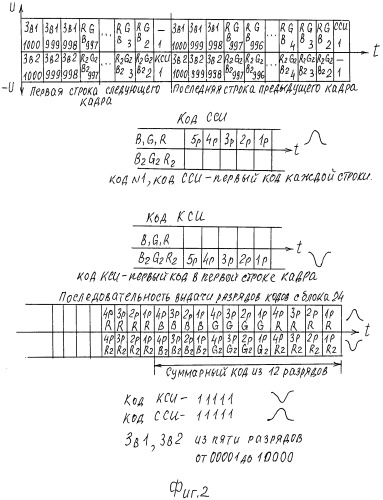 U
Зв1 Зв1 Зв1 RG ... RG RG — Зв1 Зв1 Зв1 RG RG ... RG RG RG ССИ
1000 999 998 B997 B3 B2 1 1000 999 998 B997 B996 B4 B3 B2 1
t
Зв2 Зв2 Зв2 R2G2 ... R2G2 R2G2 КСИ Зв2 Зв2 Зв2 R2G2 R2G2 ... R2G2 R2G2 R2G2 —
1000 999 998 B2997 B23 B22 1 1000 999 998 B2997 B2996 B24 B23 B22 1
-U
Первая строка следующего кадра
Последняя строка предыдущего кадра
Код ССИ
B,G,R 5р 4р 3р 2р 1р
t
B2G2R2
код N1, код ССИ-первый код каждой строки.
Код КСИ
B,G,R
t
B2G2R2 5р 4р 3р 2р 1р
код КСИ-первый код в первой строке кадра
Последовательность выдачи разрядов кодов с блока 24
4р 3р 2р 1р 4р 3р 2р 1р 4р 3р 2р 1р 4р 3р 2р 1р
R R R R B B B B G G G G R R R R
t
4р 3р 2р 1р 4р 3р 2р 1р 4р 3р 2р 1р 4р 3р 2р 1р
R2 R2 R2 R2 B2 B2 B2 B2 G2 G2 G2 G2 R2 R2 R2 R2
Суммарный код из 12 разрядов
Код КСИ- 11111
Код ССИ- 11111
Зв1, Зв2 из пяти разрядов
от 00001 до 10000
Фиг.2